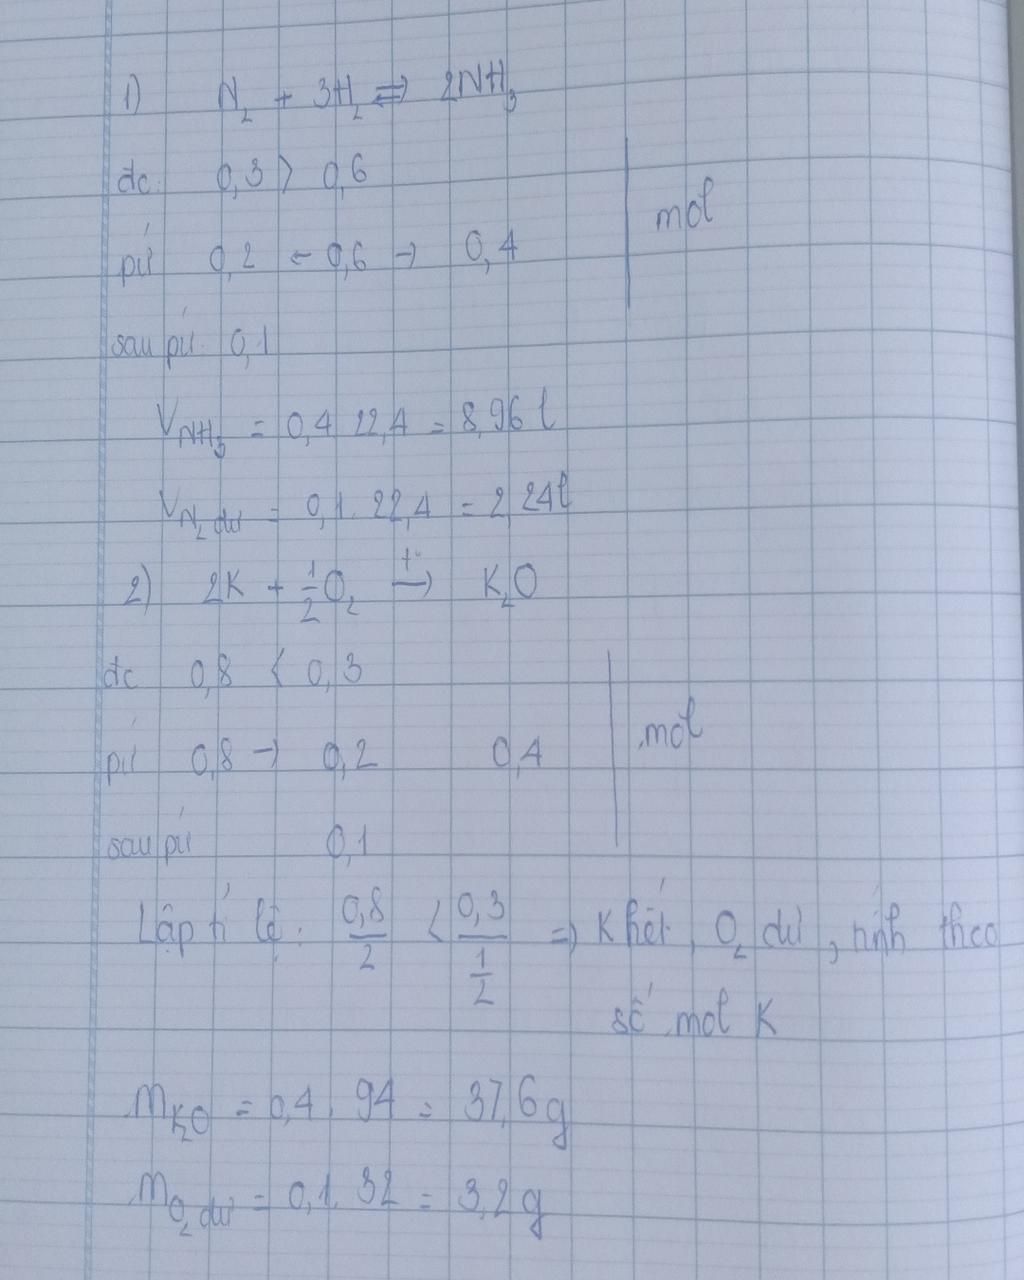 1) N₂ + 3H₂ ⇌ 2NH₃
đc: 0,3 > 0,6
pứ 0,2 ← 0,6 → 0,4 mol
sau pứ: 0,1
V_NH₃ = 0,4 22,4 = 8,96 l
V_N₂ dư = 0,1. 22,4 = 2,24l
2) 2K + 1/2 O₂ t°→ K₂O
đc 0,8 < 0,3
pứ 0,8 → 0,2 0,4 mol
sau pứ 0,1
Lập tỉ lệ: 0,8/2 < 0,3/(1/2) => K hết, O₂ dư, tính theo
số mol K
m_K₂O = 0,4. 94 = 37,6g
m_O₂ dư = 0,1. 32 = 3,2g